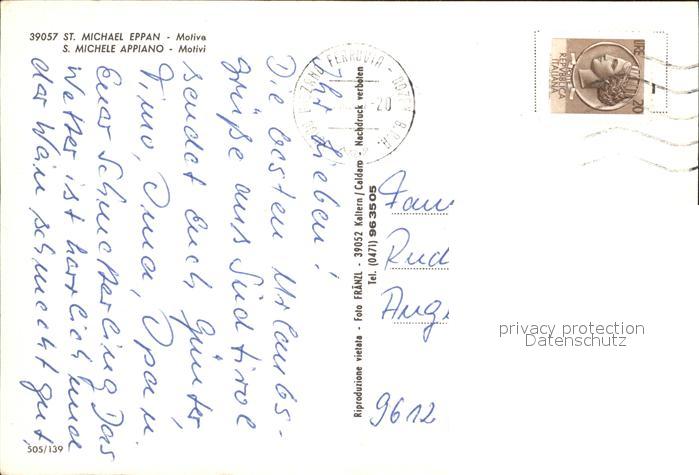 39057 ST. MICHAEL EPPAN - Motive
S. MICHELE APPIANO - Motivi
Ihr Lieben!
Die besten Urlaubs-
grüße aus Südtirol
sendet Euch Günter,
Timo, Oma, Opa u.
Euer Schmetterling. Das
Wetter ist herrlich und
der Wein schmeckt gut.
505/139
Riproduzione vietata - Foto FRÄNZL - 39052 Kaltern/Caldaro - Nachdruck verboten
Tel. (0471) 963505
FERROVIA
20
LIRE
REPVBBLICA
ITALIANA
20
Fam
Rud
Auge
9612
privacy protection
Datenschutz